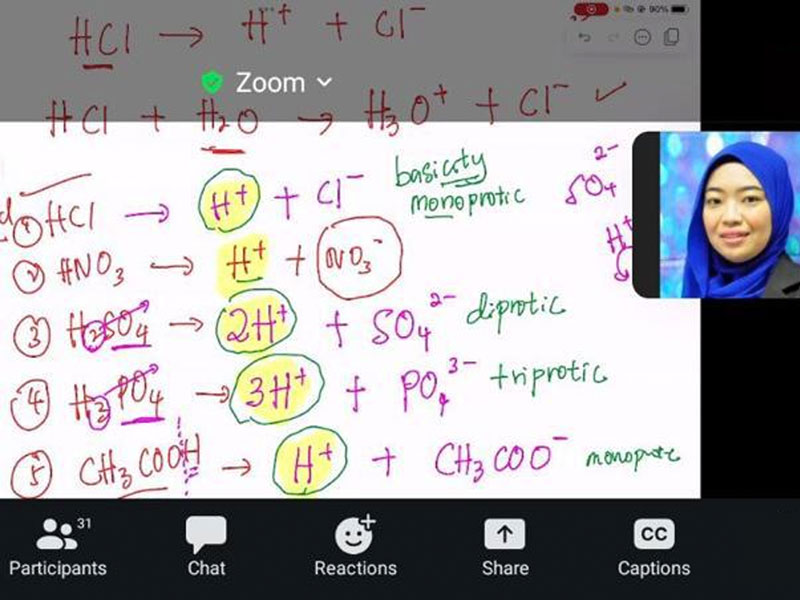 HCl → H⁺ + Cl⁻
90%
Zoom
HCl + H₂O → H₃O⁺ + Cl⁻ ✓
basicity
monoprotic
SO₄²⁻
H⁺
① HCl → H⁺ + Cl⁻
② HNO₃ → H⁺ + NO₃⁻
③ H₂SO₄ → 2H⁺ + SO₄²⁻ diprotic
④ H₃PO₄ → 3H⁺ + PO₄³⁻ triprotic
⑤ CH₃COOH → H⁺ + CH₃COO⁻
31
CC
Participants Chat Reactions Share Captions